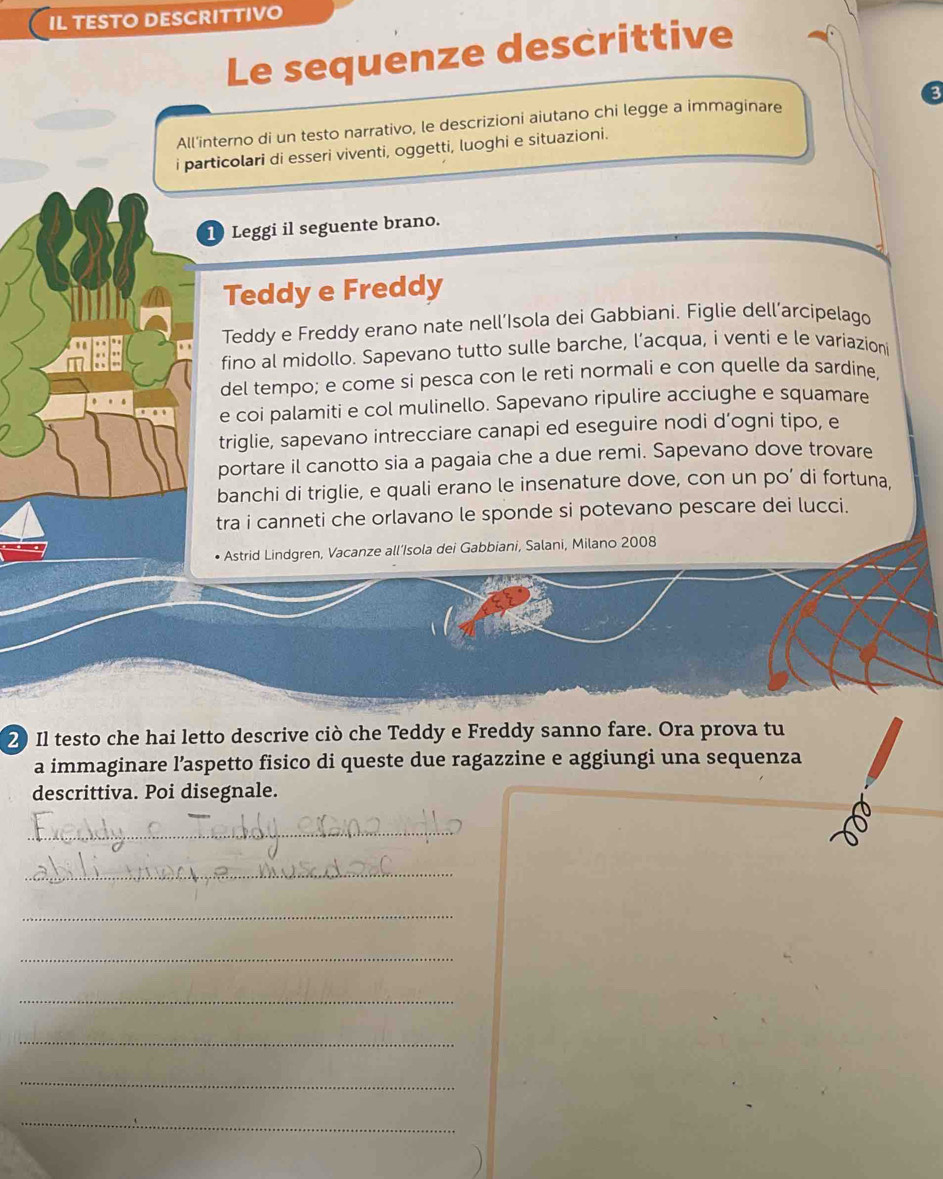 IL TESTO DESCRITTIVO
Le sequenze descrittive
3
All'interno di un testo narrativo, le descrizioni aiutano chi legge a immaginare
i particolari di esseri viventi, oggetti, luoghi e situazioni.
1 Leggi il seguente brano.
Teddy e Freddy
Teddy e Freddy erano nate nell'Isola dei Gabbiani. Figlie dell'arcipelago
fino al midollo. Sapevano tutto sulle barche, l'acqua, i venti e le variazioni
del tempo; e come si pesca con le reti normali e con quelle da sardine,
e coi palamiti e col mulinello. Sapevano ripulire acciughe e squamare
triglie, sapevano intrecciare canapi ed eseguire nodi d'ogni tipo, e
portare il canotto sia a pagaia che a due remi. Sapevano dove trovare
banchi di triglie, e quali erano le insenature dove, con un po' di fortuna,
tra i canneti che orlavano le sponde si potevano pescare dei lucci.
• Astrid Lindgren, Vacanze all'Isola dei Gabbiani, Salani, Milano 2008
2 Il testo che hai letto descrive ciò che Teddy e Freddy sanno fare. Ora prova tu
a immaginare l'aspetto fisico di queste due ragazzine e aggiungi una sequenza
descrittiva. Poi disegnale.
Freddy e Teddy erano
abili